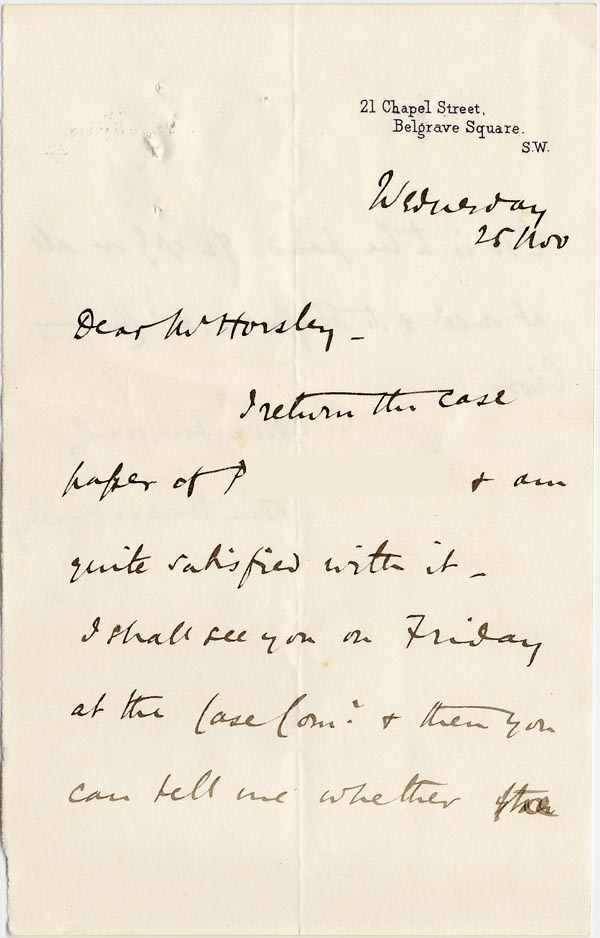 21 Chapel Street,
Belgrave Square.
S.W.
Wednesday
25 Nov
Dear Mr Horsley –
I return the case
paper of P & am
quite satisfied with it –
I shall see you on Friday
at the Case Comee & then you
can tell me whether